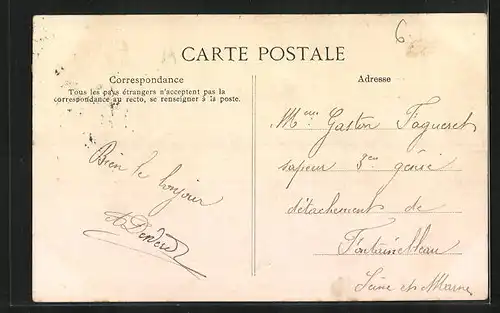 6
CARTE POSTALE
Correspondance
Tous les pays étrangers n'acceptent pas la
correspondance au recto, se renseigner à la poste.
Bien le bonjour
Adresse
Gaston Fagueret
sapeur 3em génie
détachement de
Fontainebleau
Seine et Marne